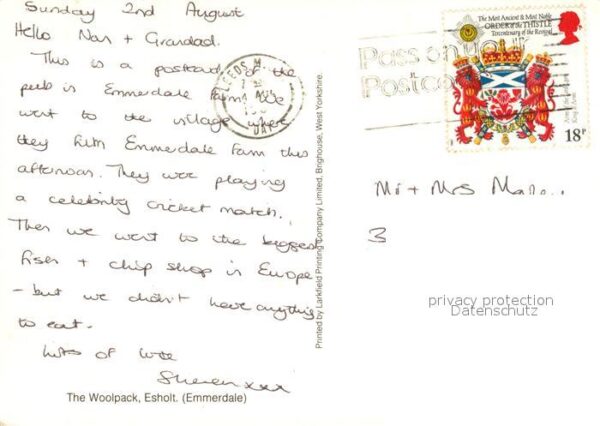 Sunday 2nd August
Hello Nan + Grandad.
This is a postcard of the
pub in Emmerdale Farm. We
went to the village where
they film Emmerdale Farm this
afternoon. They were playing
a celebrity cricket match.
Then we went to the biggest
fish + chip shop in Europe
- but we didn't have anything
to eat.
Lots of love
xxx
The Woolpack, Esholt. (Emmerdale)
Printed by Larkfield Printing Company Limited, Brighouse, West Yorkshire.
LEEDS
AUG
Pass on your
Postco
The Most Ancient & Most Noble
ORDER of the THISTLE
Tercentenary of the Revival
18P
Mr + Mrs
3
privacy protection
Datenschutz